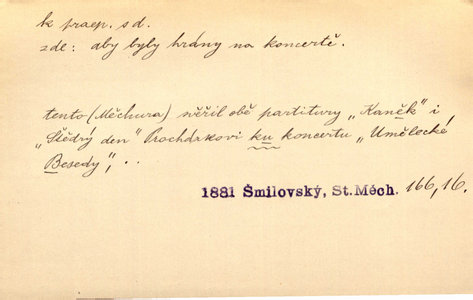 k praep. s d.
zde: aby byly hrány na koncertě.
tento (Měchura) věřil obě partitury „Haněk" i
„Štědrý den" Procházkovi ku koncertu „Umělecké
Besedy", ..
1881 Šmilovský, St. Měch. 166, 16.